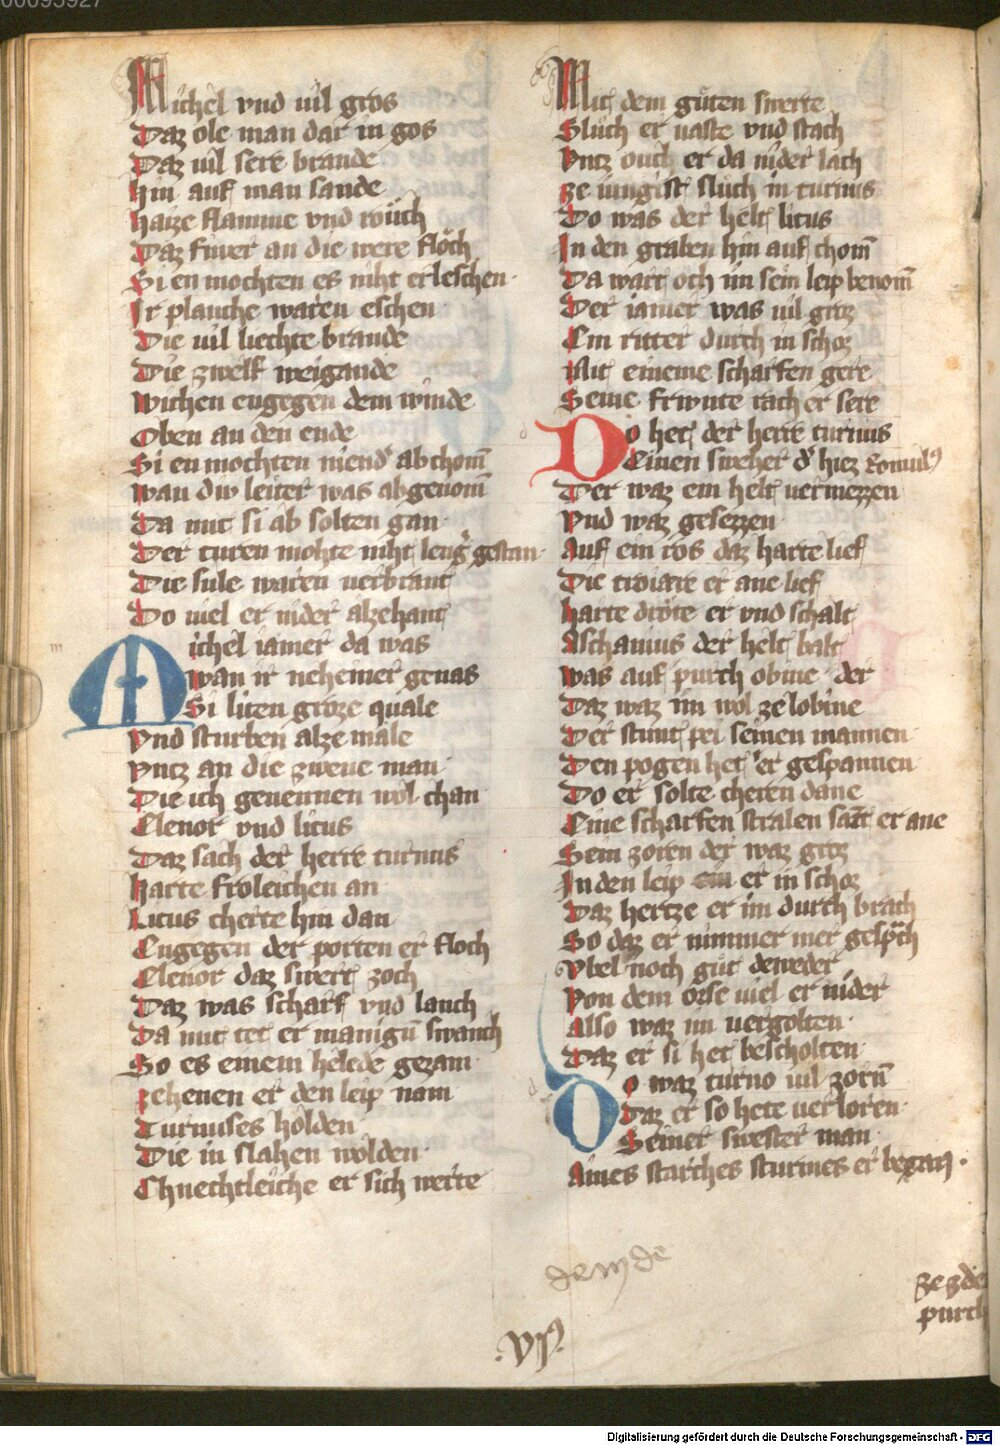 00095927
Michel vnd uil gros
Daz ole man dar in gos
Daz uil sere brande
hin auf man sande
haize flamme vnd roͮch
Daz fiwer an die were floͮch
Si en mochten es niht erleschen·
Ir planche waren eschen
Die uil liechte brande
Die zwelf weigande
wichen engegen dem winde
Oben an den ende
Si en mochten niend͛ ab chom̄
wan diw leiter was abgenom̄
Da mit si ab solten gan·
Der turen mohte niht leng͛ gestan·
Die sule waren uerbrant
Do uiel er nider alzehant
Michel iamer da was
wan ir neheiner genas
Si liten groze quale
Vnd sturben alzemale
Vntz an die zwene man
Die ich genennen wol chan
Elenor vnd licus
Daz sach der herre turnus
harte froleichen an
Licus cherte hin dan
Engegen der porten er floch
Elenor daz swert zoch
Daz was scharf vnd lanch
Da mit tet er manigū swanch
So es einem helede gezam·
zehenen er den leip nam
Turnuses holden
Die in slahen wolden·
Chnechtleiche er sich werte
Mit dem guͤten swerte
Sluͤch er uaste vnd stach
Vntz ouch er da nider lach
ze iungist sluͤch in turnus
Do was der helt licus
In den graben hin auf chom̄
Da wart och im sein leip benom̄
Der iamer was uil groz
Ein ritter durch in schoz
Mit eineme scharfen gere
Seine friwnte rach er sere
Do het der herre turnus
Einen sweher d͛ hiez Romulꝰ
Der waz ein helt uermezzen
Vnd waz gesezzen
Auf ein ros daz harte lief
Die troiare er ane lief
harte drote er vnd schalt
Aschanius der helt balt
was auf purch obine der
Daz waz im wol ze lobine
Der stunt pei seinen mannen·
Den pogen het er gespannen
Do er solte cheren dane
Eine scharfen stralen sazt er ane
Sein zoren der waz groz
In den leip ein er in schoz
Daz hertze er im durch brach
So daz er nimmer mer gesp̄ch
Vbel noch guͤt deweder
Von dem orse uiel er nider
Also waz im uergolten·
Daz er si het bescholten·
Do waz turno uil zorn̄
Daz er so hete uerloren·
Seiner swester man
Aines starches sturmes er began·
ze gde
purch
.vj.
Digitalisierung gefördert durch die Deutsche Forschungsgemeinschaft · DFG